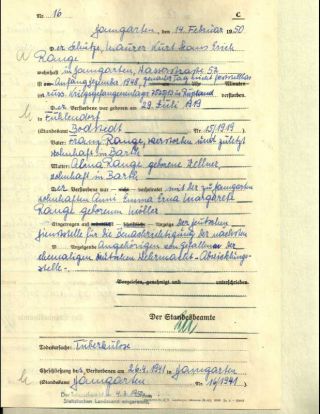 Nr. 16 C
Saumgarten, den 14. Februar 1950
Der Schütze, Maurer Kurt Hans Erich
Range
wohnhaft in Saumgarten, Wasserstraße 52
ist Anfang September 1948, genauer Tag nicht feststellbar
russ. Kriegsgefangenenlager in Rußland
verstorben.
Der Verstorbene war geboren am 29. Juli 1919
in Fuhlendorf
(Standesamt Bodstedt Nr. 15/1919)
Vater: Franz Range, verstorben und zuletzt
wohnhaft in Barth
Mutter: Alma Range geborene Zellner,
wohnhaft in Barth
Der Verstorbene war – nicht – verheiratet mit der zu Saumgarten
wohnhaften Anni Emma Erna Margarete
Range geborenen Möller
Eingetragen auf Anzeige der deutschen
Dienststelle für die Benachrichtigung der nächsten
Anzeigende Angehörigen von Gefallenen der
ehemaligen deutschen Wehrmacht - Abwicklungs-
stelle.-
Vorgelesen, genehmigt und unterschrieben
Der Standesbeamte
Todesursache: Tuberkulose
Eheschließung de Verstorbenen am 26.4.1941 in Saumgarten
(Standesamt Saumgarten Nr. 16/1941)
Statistischen Landesamt eingereicht